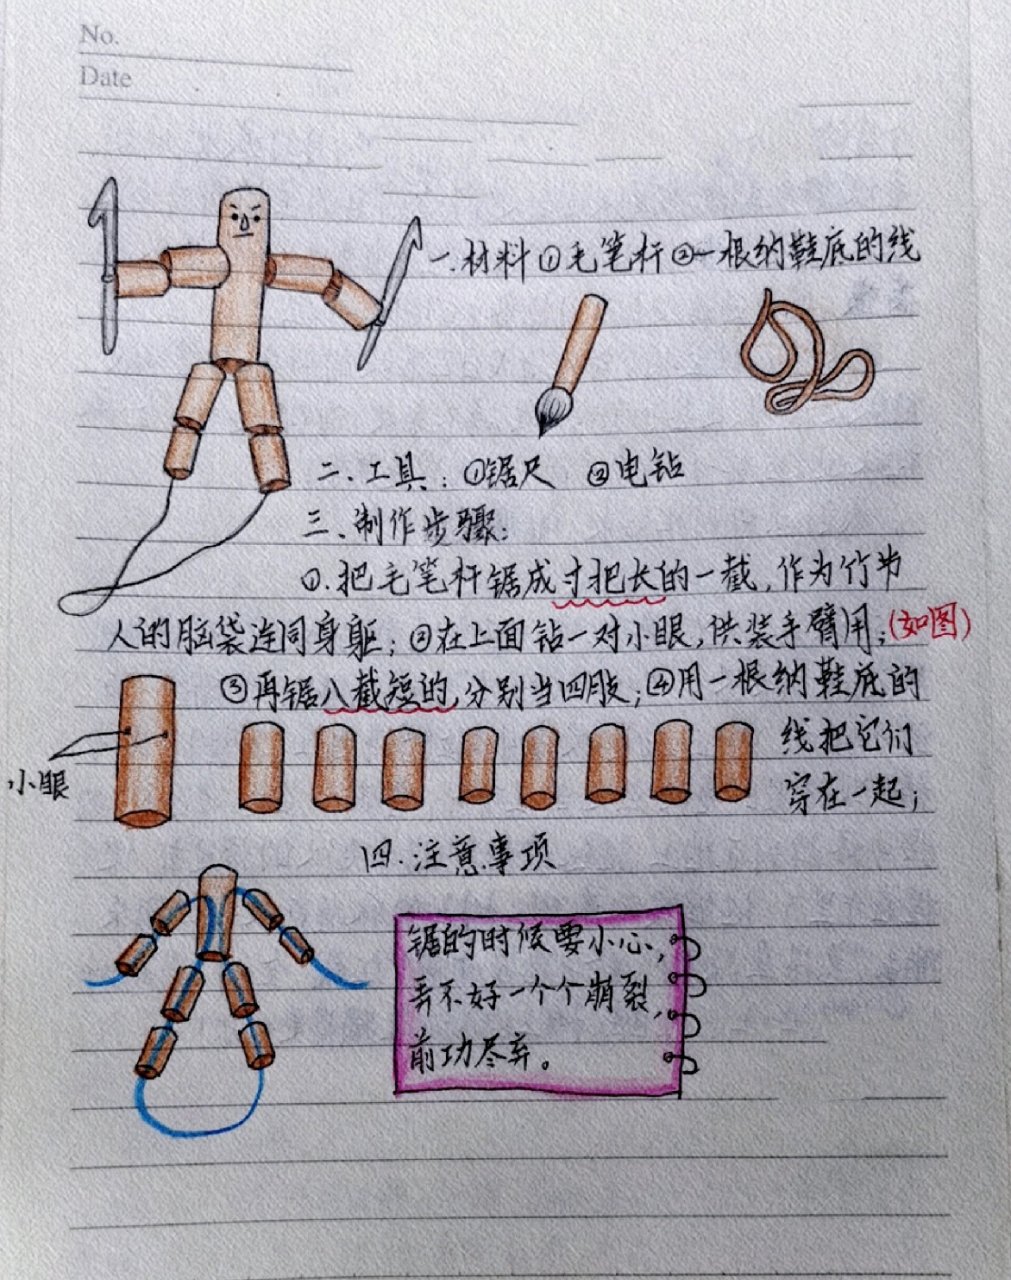 No.
Date
一.材料①毛笔杆②一根纳鞋底的线
二.工具:①锯尺 ②电钻
三、制作步骤:
①.把毛笔杆锯成寸把长的一截,作为竹节
人的脑袋连同身躯;②在上面钻一对小眼,供装手臂用;(如图)
③再锯八截短的,分别当四肢;④用一根纳鞋底的
线把它们
穿在一起;
小眼
四.注意事项
锯的时候要小心,
弄不好一个个崩裂,
前功尽弃。